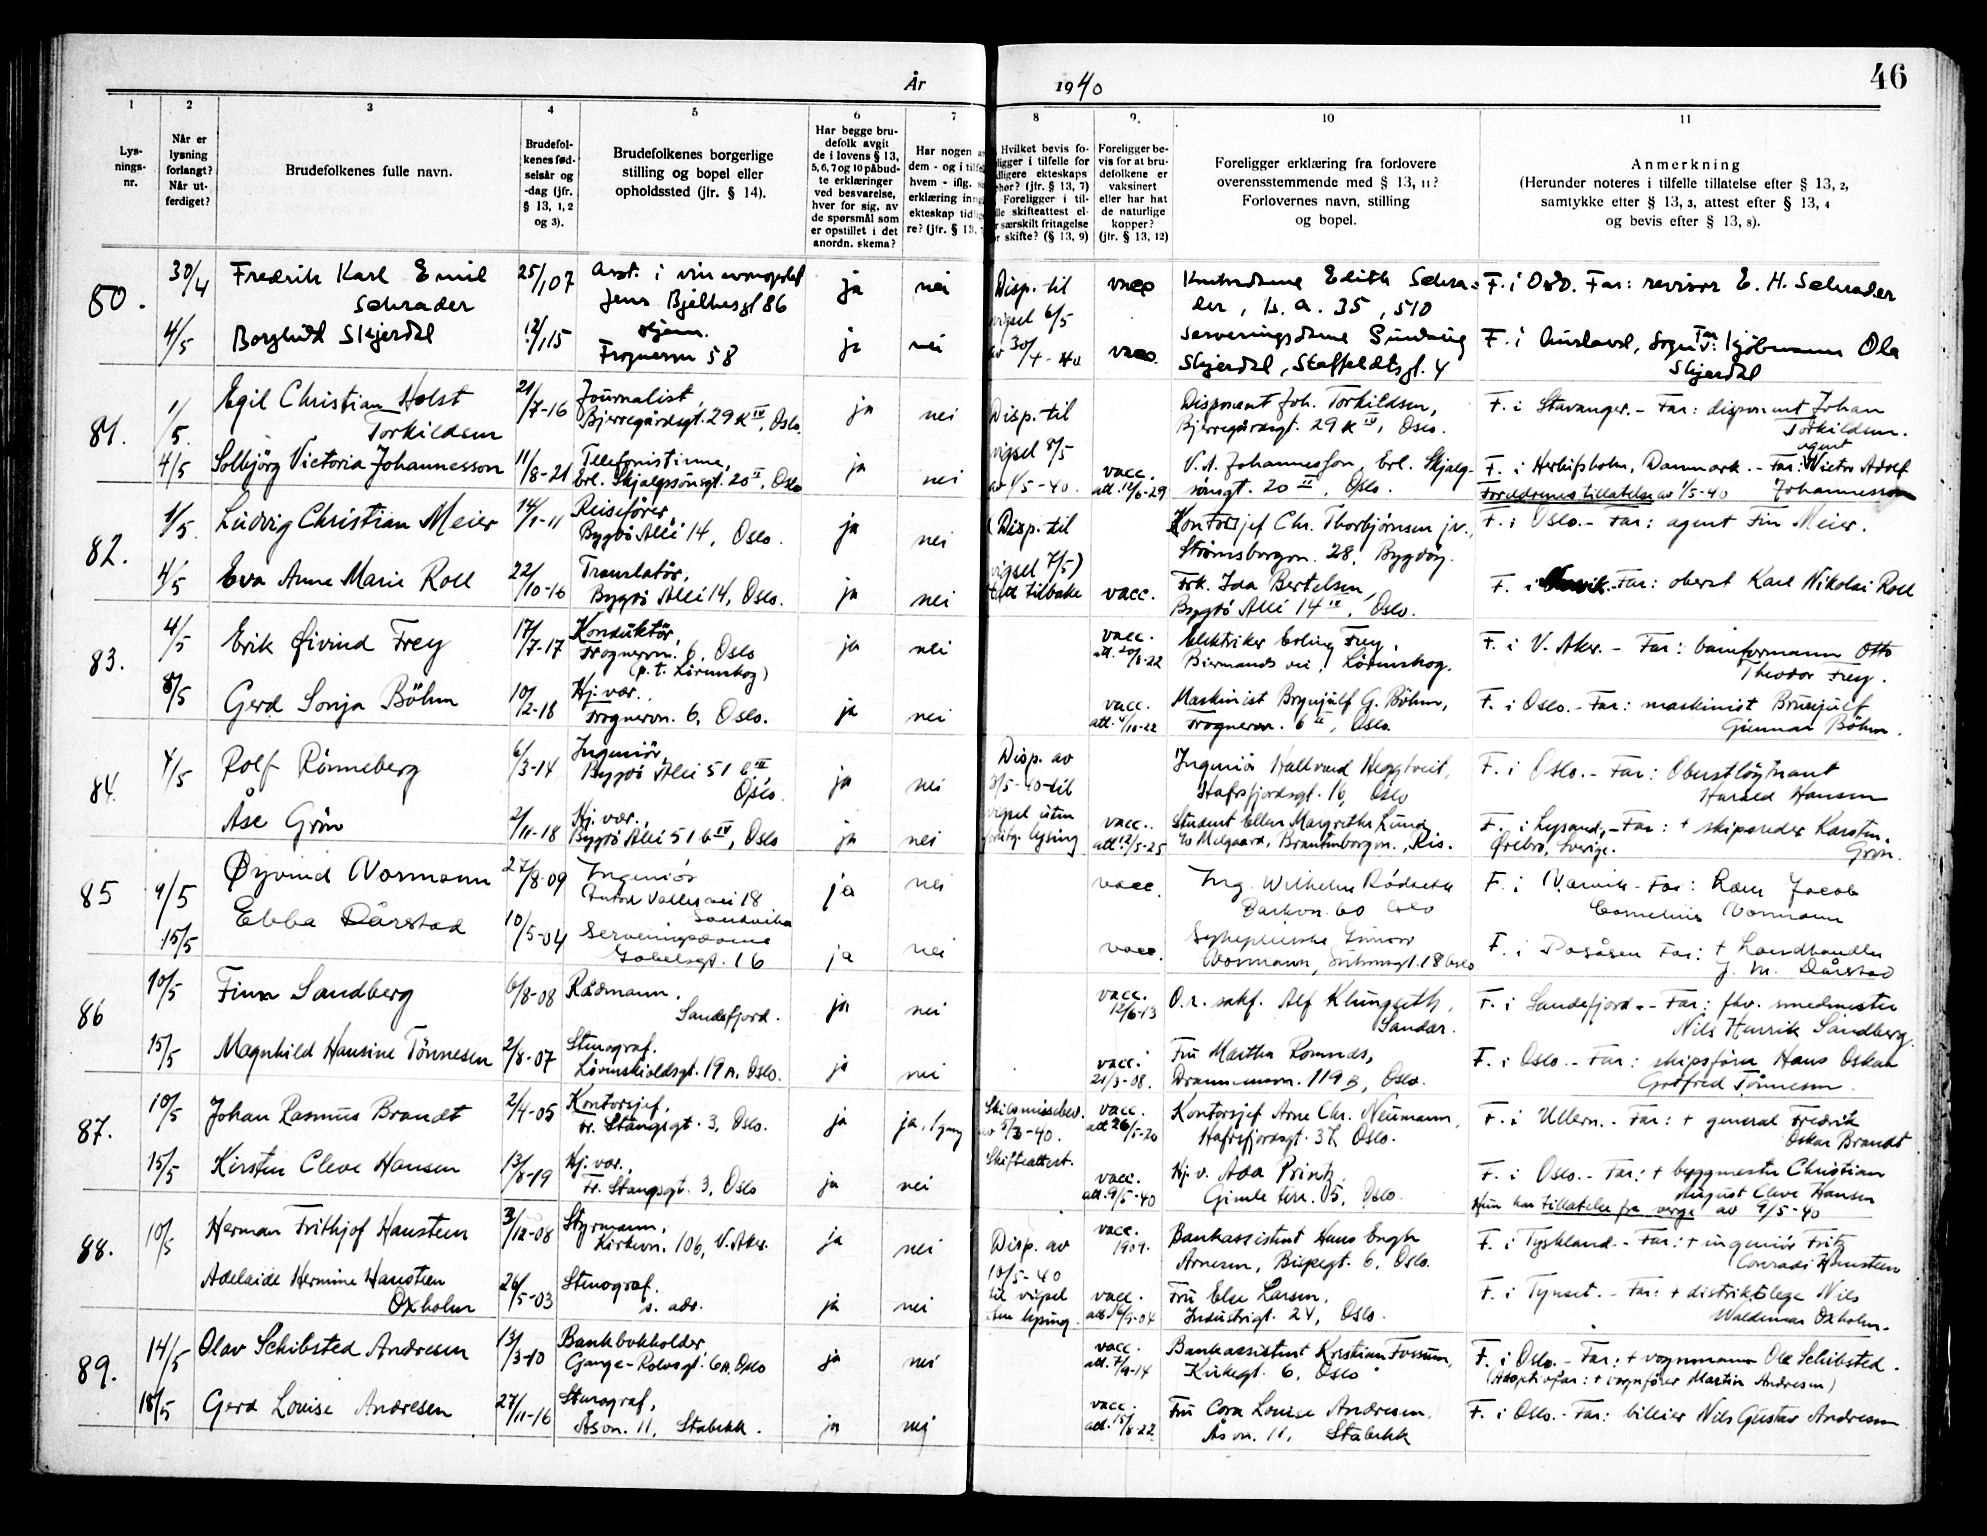 År 1940
46
1
2
3
4
5
6
7
8
9.
10
11
Lys-
nings-
nr.
Når er
lysning
forlangt?
Når ut-
ferdiget?
Brudefolkenes fulle navn.
Brudefol-
kenes fød-
selsår og
-dag (jfr.
§ 13, 1, 2
og 3).
Brudefolkenes borgerlige
stilling og bopel eller
opholdssted (jfr. § 14).
Har begge bru-
defolk avgit
de i lovens § 13,
5, 6, 7 og 10 påbud-
te erklæringer
ved besvarelse,
hver for sig, av
de spørsmål som
er opstillet i det
anordn. skema?
Har nogen
dem - og i tilf
hvem - iflg.
erklæring inn
ekteskap tidl
re? (jfr. § 13,
Hvilket bevis fo-
ligger i tilfelle for
dligere ekteskaps
hør? (jfr. § 13, 7)
Foreligger i til-
lle skifteattest el-
r særskilt fritagelse
r skifte? (§ 13, 9)
Foreligger be-
vis for at bru-
defolkene er
vaksinert
eller har hat
de naturlige
kopper?
(jfr. § 13, 12)
Foreligger erklæring fra forlovere
overensstemmende med § 13, 11?
Forlovernes navn, stilling
og bopel.
Anmerkning
(Herunder noteres i tilfelle tillatelse efter § 13, 2,
samtykke efter § 13, 3, attest efter § 13, 4
og bevis efter § 13, 8).
80.
30/4 Fredrik Karl Emil
Schrader
25/1 07
Jens Bjelkesgt 86
ja nei
Disp. til
vigsel 6/5
av 30/4-40
vacc
Edith Schra-
der, 35, 510
F. i Oslo. Far: revisor E. H. Schrader
4/5 Borghild Skjerdal
12/1 15
Frognervn 58
ja nei
vacc.
Serveringsdame
Skjerdal, Staffeldtsgt. 4
F. i Aurland, Sogn. Far: kjøbmann Ola
Skjerdal
81.
1/5. Egil Christian Holst
Torkildsen
21/7-16
Journalist,
Bjerregårdsgt. 29 K IV, Oslo.
ja nei
Disp. til
vigsel 8/5
av 1/5-40.
Disponent Joh. Torkildsen,
Bjerregårdsgt. 29 K IV, Oslo.
F. i Stavanger. - Far: disponent Johan
Torkildsen.
4/5 Solbjörg Victoria Johannesson
11/8-21
Telefonistinne,
Erl. Skjalgssönsgt. 20 II, Oslo
ja nei
vacc.
att. 12/6-29
V. A. Johannesson, Erl. Skjalgs-
sönsgt. 20 II, Oslo.
F. i Danmark. - Far: agent Victor Adolf
Johannesson
Foreldrenes tillatelse av 1/5-40
82.
1/5. Ludvig Christian Meier
14/1-11
Reisefører,
Bygdö Allé 14, Oslo.
ja nei
(Disp. til
vigsel 7/5)
tilbake
Kontorsjef Chr. Thorbjørnsen jr.,
Strømsborgvn. 28, Bygdöy.
F. i Oslo. - Far: agent Fin Meier.
4/5 Eva Anne Marie Roll
22/10-16
Translatör,
Bygdö Allé 14, Oslo.
ja nei
vacc.
Frk. Ida Bertelsen,
Bygdö Allé 14 IV, Oslo.
F. i Narvik. Far: oberst Karl Nikolai Roll
83.
4/5 Erik Øivind Frey
17/7-17
Konduktör,
Frognervn. 6, Oslo
(p. t. Lörenskog)
ja nei
vacc.
Elektriker Erling Frey,
Biermanns vei, Lörenskog.
F. i V. Aker. - Far: Otto
Theodor Frey.
8/5 Gerd Sonja Böhm
10/2-18
Hj. vær.
Frognervn. 6, Oslo.
ja nei
vacc.
att. 4/10-22
Maskinist Brynjulf G. Böhm,
Frognervn. 6 II, Oslo.
F. i Oslo. - Far: maskinist Brynjulf
Gunnar Böhm.
84.
4/5 Rolf Rönneberg
6/3-14
Ingeniör,
Bygdö Allé 51 b III,
Oslo.
ja nei
Disp. av
3/5-40 til
vigsel uten
lysing
Ingeniör Hallvard Heggtveit,
Hafrsfjordsgt. 16, Oslo
F. i Oslo. - Far: Oberstlöytnant
Harald Hansen
Åse Grön
2/11-18
Hj. vær.,
Bygdö Allé 51 b IV, Oslo
ja nei
vacc.
att. 12/5-25
Student Ellen Margrethe Lund
Melgaard, Brantenborgvn., Ris.
F. i Lysand, - Far: + skipsreder Karsten
Örebro, Sverige.
Grön.
85
4/5 Øyvind Normann
27/8-09
Ingeniör
Anton Valles vei 18
Sandvika
ja nei
vacc.
Ing. Wilhelm Rödseth
Parkvn. 60 Oslo
F. i Narvik - Far: Jacob
Cornelius Normann
15/5 Ebba Dårstad
10/5-04
Serveringsdame
Gabelsgt. 16
ja nei
vacc.
Sykepleierske
Normann, 18 Oslo
F. i Far: + Landhandler
J. M. Dårstad
86
10/5 Finn Sandberg
6/8-08
Rådmann.
Sandefjord.
ja nei
vacc.
12/6-13
O. r. sakf. Alf Klingseth,
Sandar.
F. i Sandefjord. - Far: fhv. smedmester
Nils Henrik Sandberg.
15/5 Magnhild Hansine Tönnesen
2/8-07
Stenograf.
Lövenskioldsgt. 19 A, Oslo.
ja nei
vacc.
21/3-08.
Fru Martha Romnæs,
Drammensvn. 119 B, Oslo.
F. i Oslo. - Far: skipsfører Hans Oskar
Gotfred Tönnesen.
87.
10/5 Johan Rasmus Brandt
2/4-05
Kontorsjef,
Fr. Stangsgt. 3, Oslo.
ja ja, 1 gang
Skilsmissebev.
av 5/3-40.
Skifteattest.
vacc.
att 26/5-20
Kontorsjef Arne Chr. Neumann,
Hafrsfjordsgt. 37, Oslo.
F. i Ullern. - Far: + general Fredrik
Oskar Brandt
15/5 Kirsten Cleve Hansen
13/8-19
Hj. vær.,
Fr. Stangsgt. 3, Oslo
ja nei
vacc.
att. 9/5-40
Hj. v. Ada Printz
Gimle terr. 5, Oslo.
F. i Oslo. - Far: + byggmester Christian
August Cleve Hansen
Hun har tillatelse fra verge av 9/5-40
88.
10/5 Herman Frithjof Hansteen
3/12-08
Styrmann,
Kirkevn. 106, V. Aker.
ja nei
Disp. av
10/5-40
til vigsel
uten lysing.
vacc.
1909.
Bankassistent Hans Engh
Arnesen, Bispegt. 6, Oslo.
F. i Tyskland. - Far: + ingeniør Fritz
Conradi Hansteen
Adelaide Hermine Hansteen
Oxholm
26/5-03
Stenograf.
s. adr.
ja nei
vacc.
att. 16/9-04
Fru Else Larsen,
Industrigt. 24, Oslo.
F. i Tynset. - Far: + distriktslege Nils
Waldemar Oxholm.
89.
14/5 Olav Schibsted Andresen
13/3-10
Bankbokholder,
Gange-Rolvsgt. 6 A, Oslo
ja nei
vacc.
att. 7/9-14
Bankassistent Kristian Fossum,
Kirkegt. 6, Oslo
F. i Oslo. - Far: + vognmann Ole Schibsted.
(Adoptivfar: + vognfører Martin Andresen)
18/5 Gerd Louise Andresen
27/11-16
Stenograf,
Åsvn. 11, Stabekk.
ja nei
vacc.
att. 15/8-22.
Fru Cora Louise Andresen,
Åsvn. 11, Stabekk
F. i Oslo. - Far: Nils Gustav Andresen